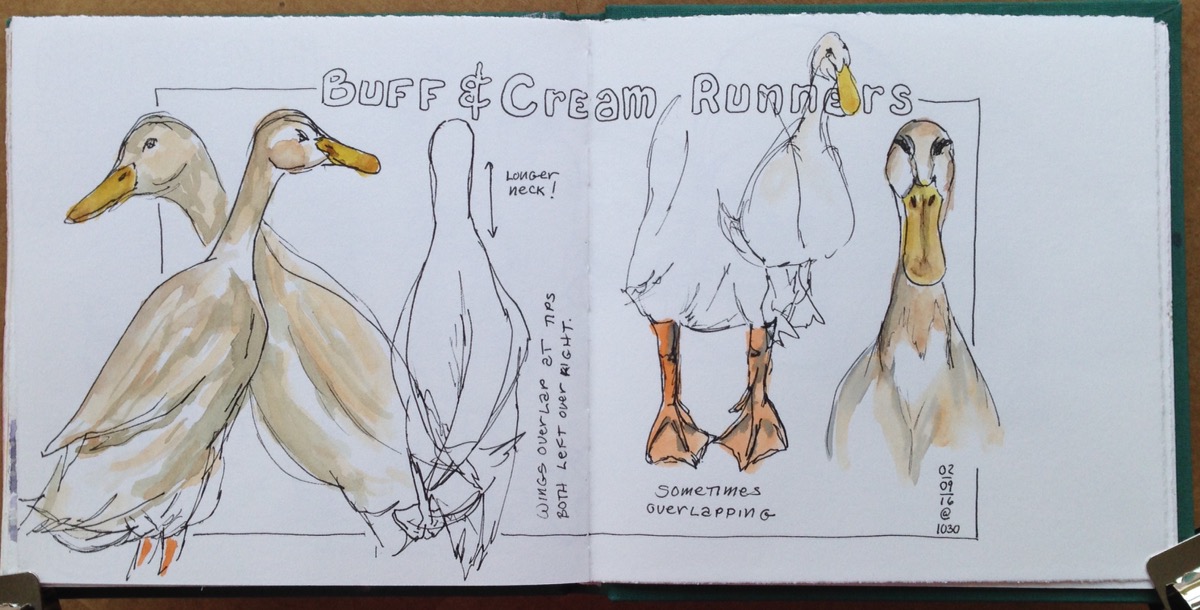 BUFF & CREAM RUNNERS
LONGER
NECK!
WINGS OVERLAP AT TIPS
BOTH LEFT OVER RIGHT.
SOMETIMES
OVERLAPPING
02
09
16
@
1030